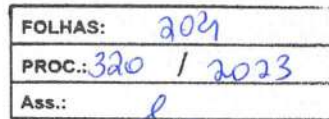 FOLHAS: 204
PROC.: 320 / 2023
Ass.: